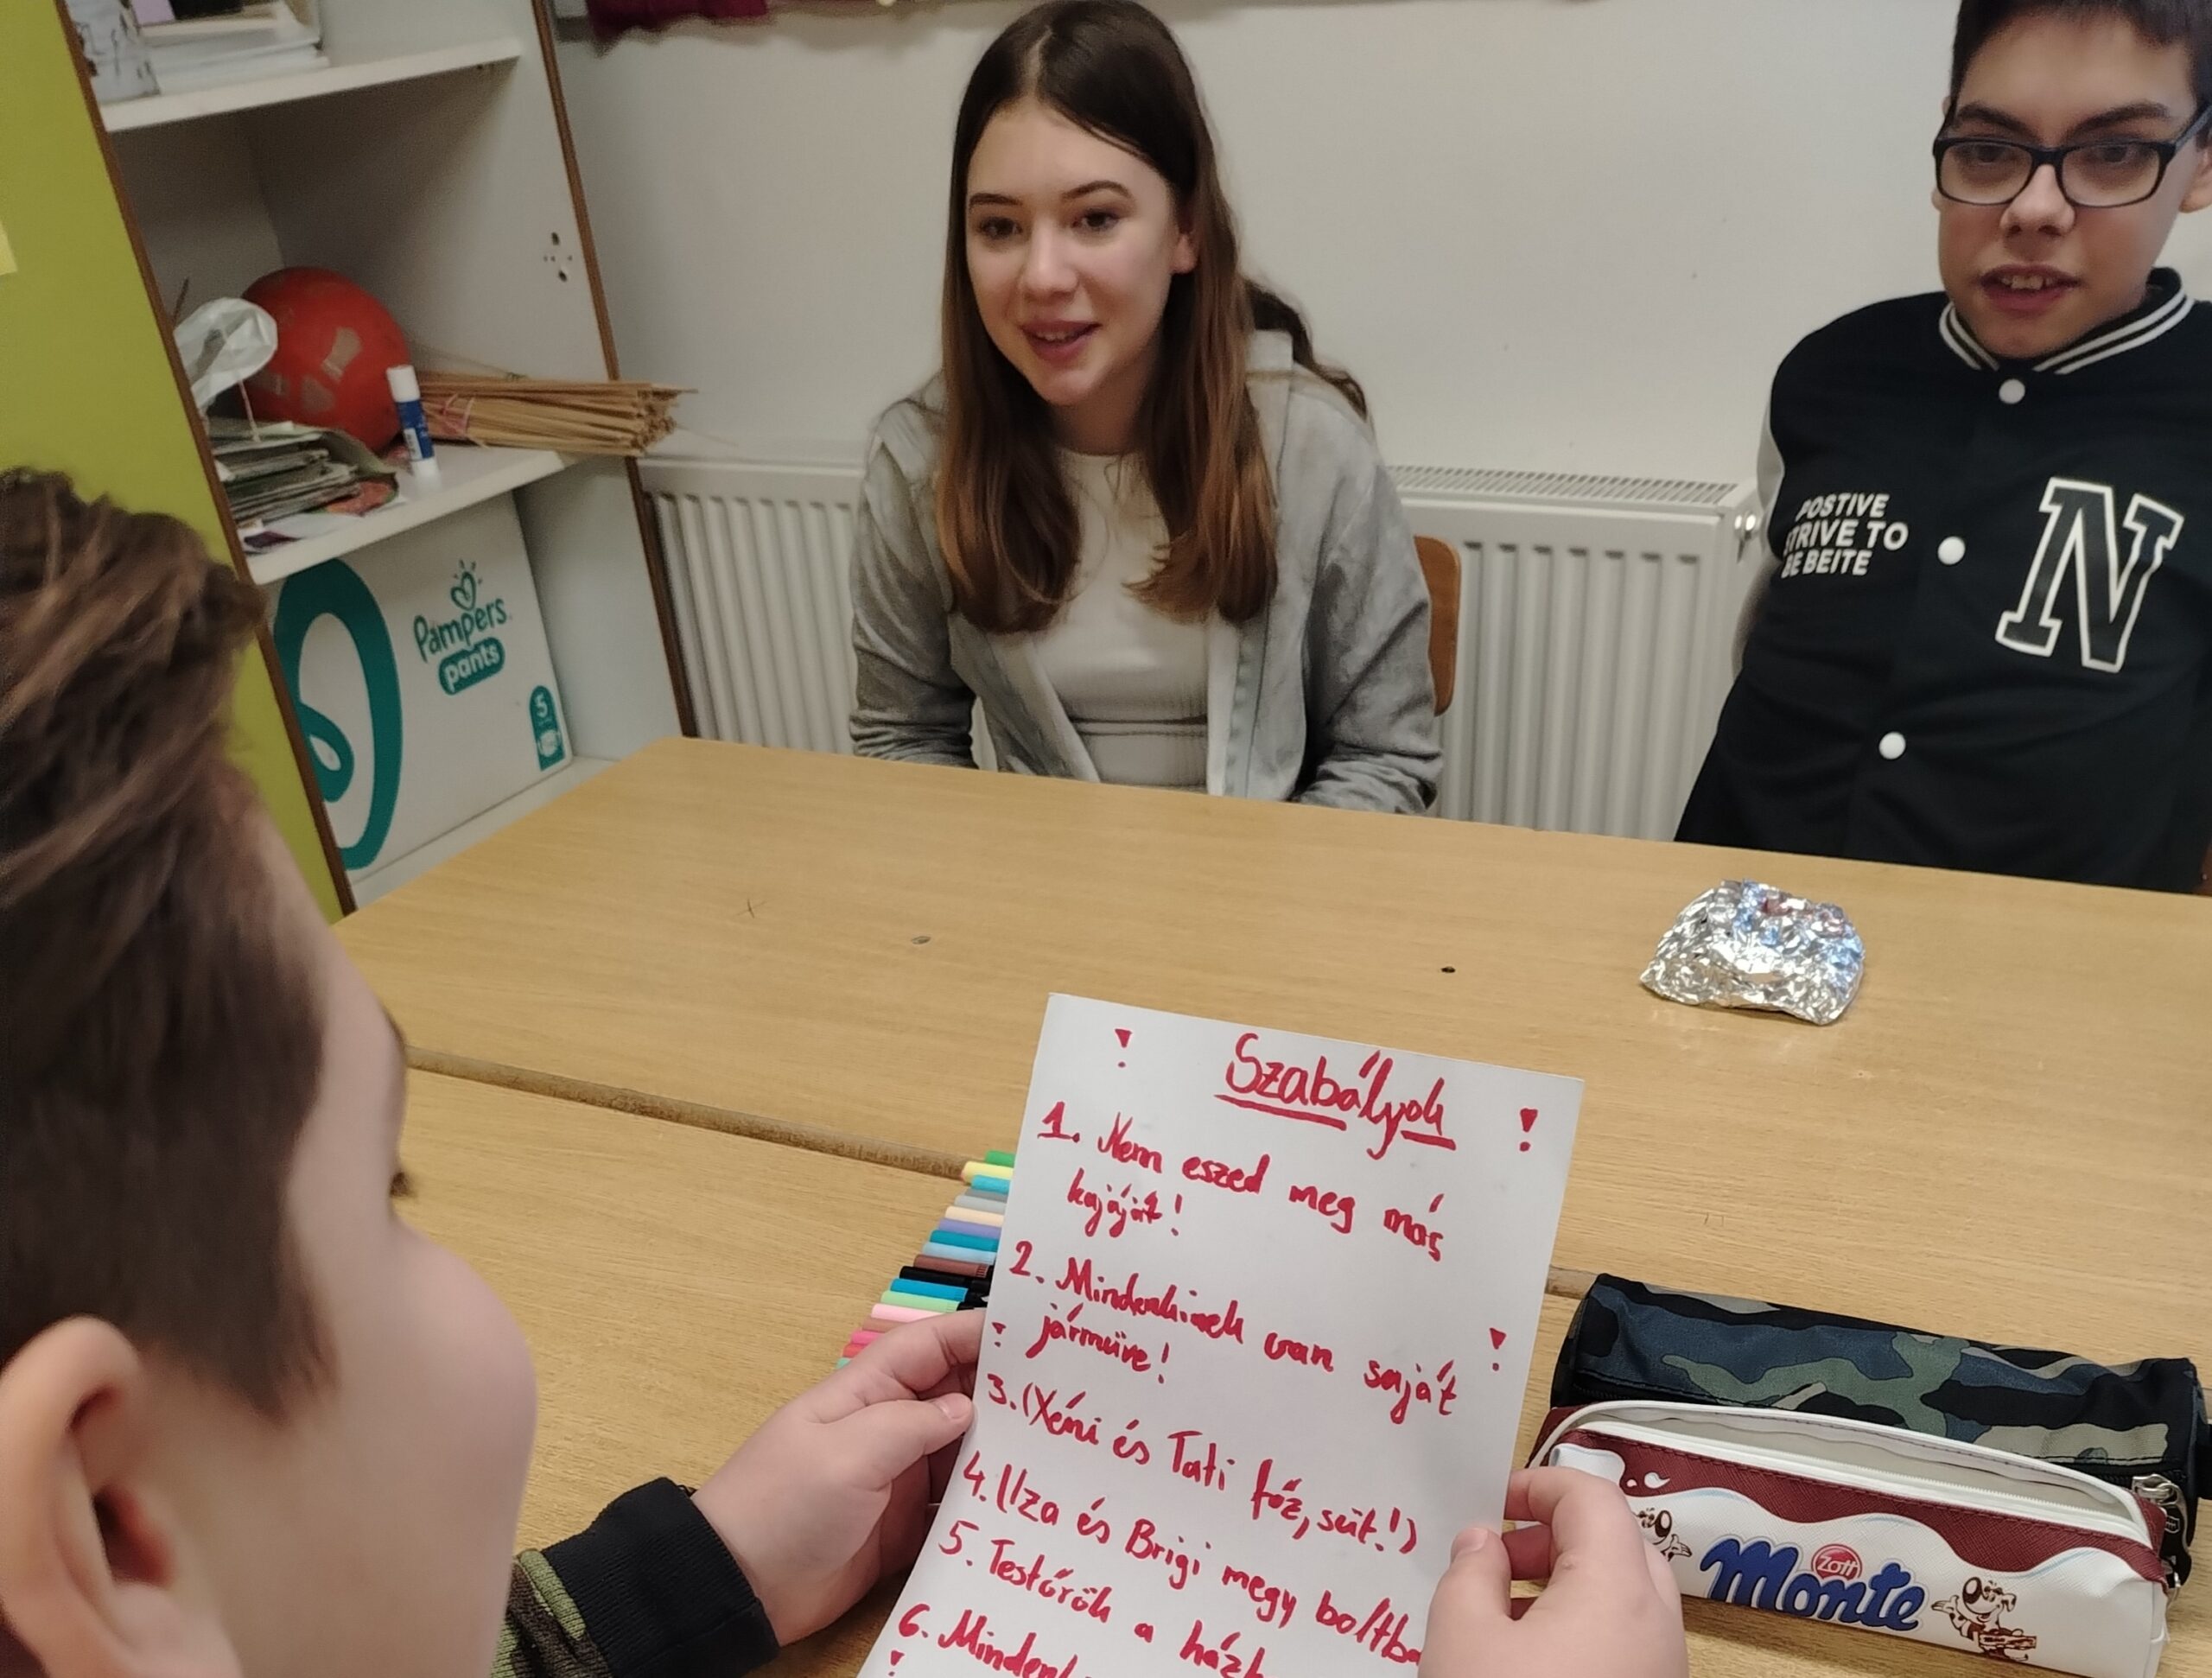 Pampers
pants
5
POSTIVE
STRIVE TO
BE BEITE
N
! Szabályok !
1. Nem eszed meg más
kajáját!
2. Mindenkinek van saját
! járműve! !
3. (Xéni és Tati főz, süt!)
4. (Iza és Brigi megy boltba
5. Testőrök a házb
6. Minden
!
Zott
Monte